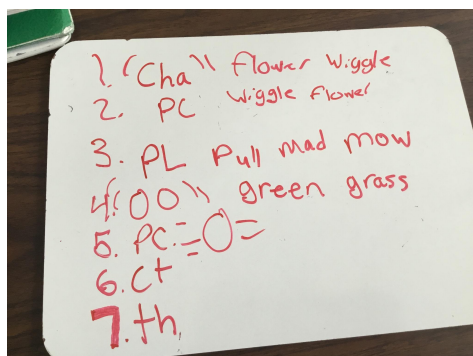 1. "Cha" flower wiggle
2. PC wiggle flower
3. PL Pull mad mow
4. "OO" green grass
5. PC=O=
6. ct
7. th